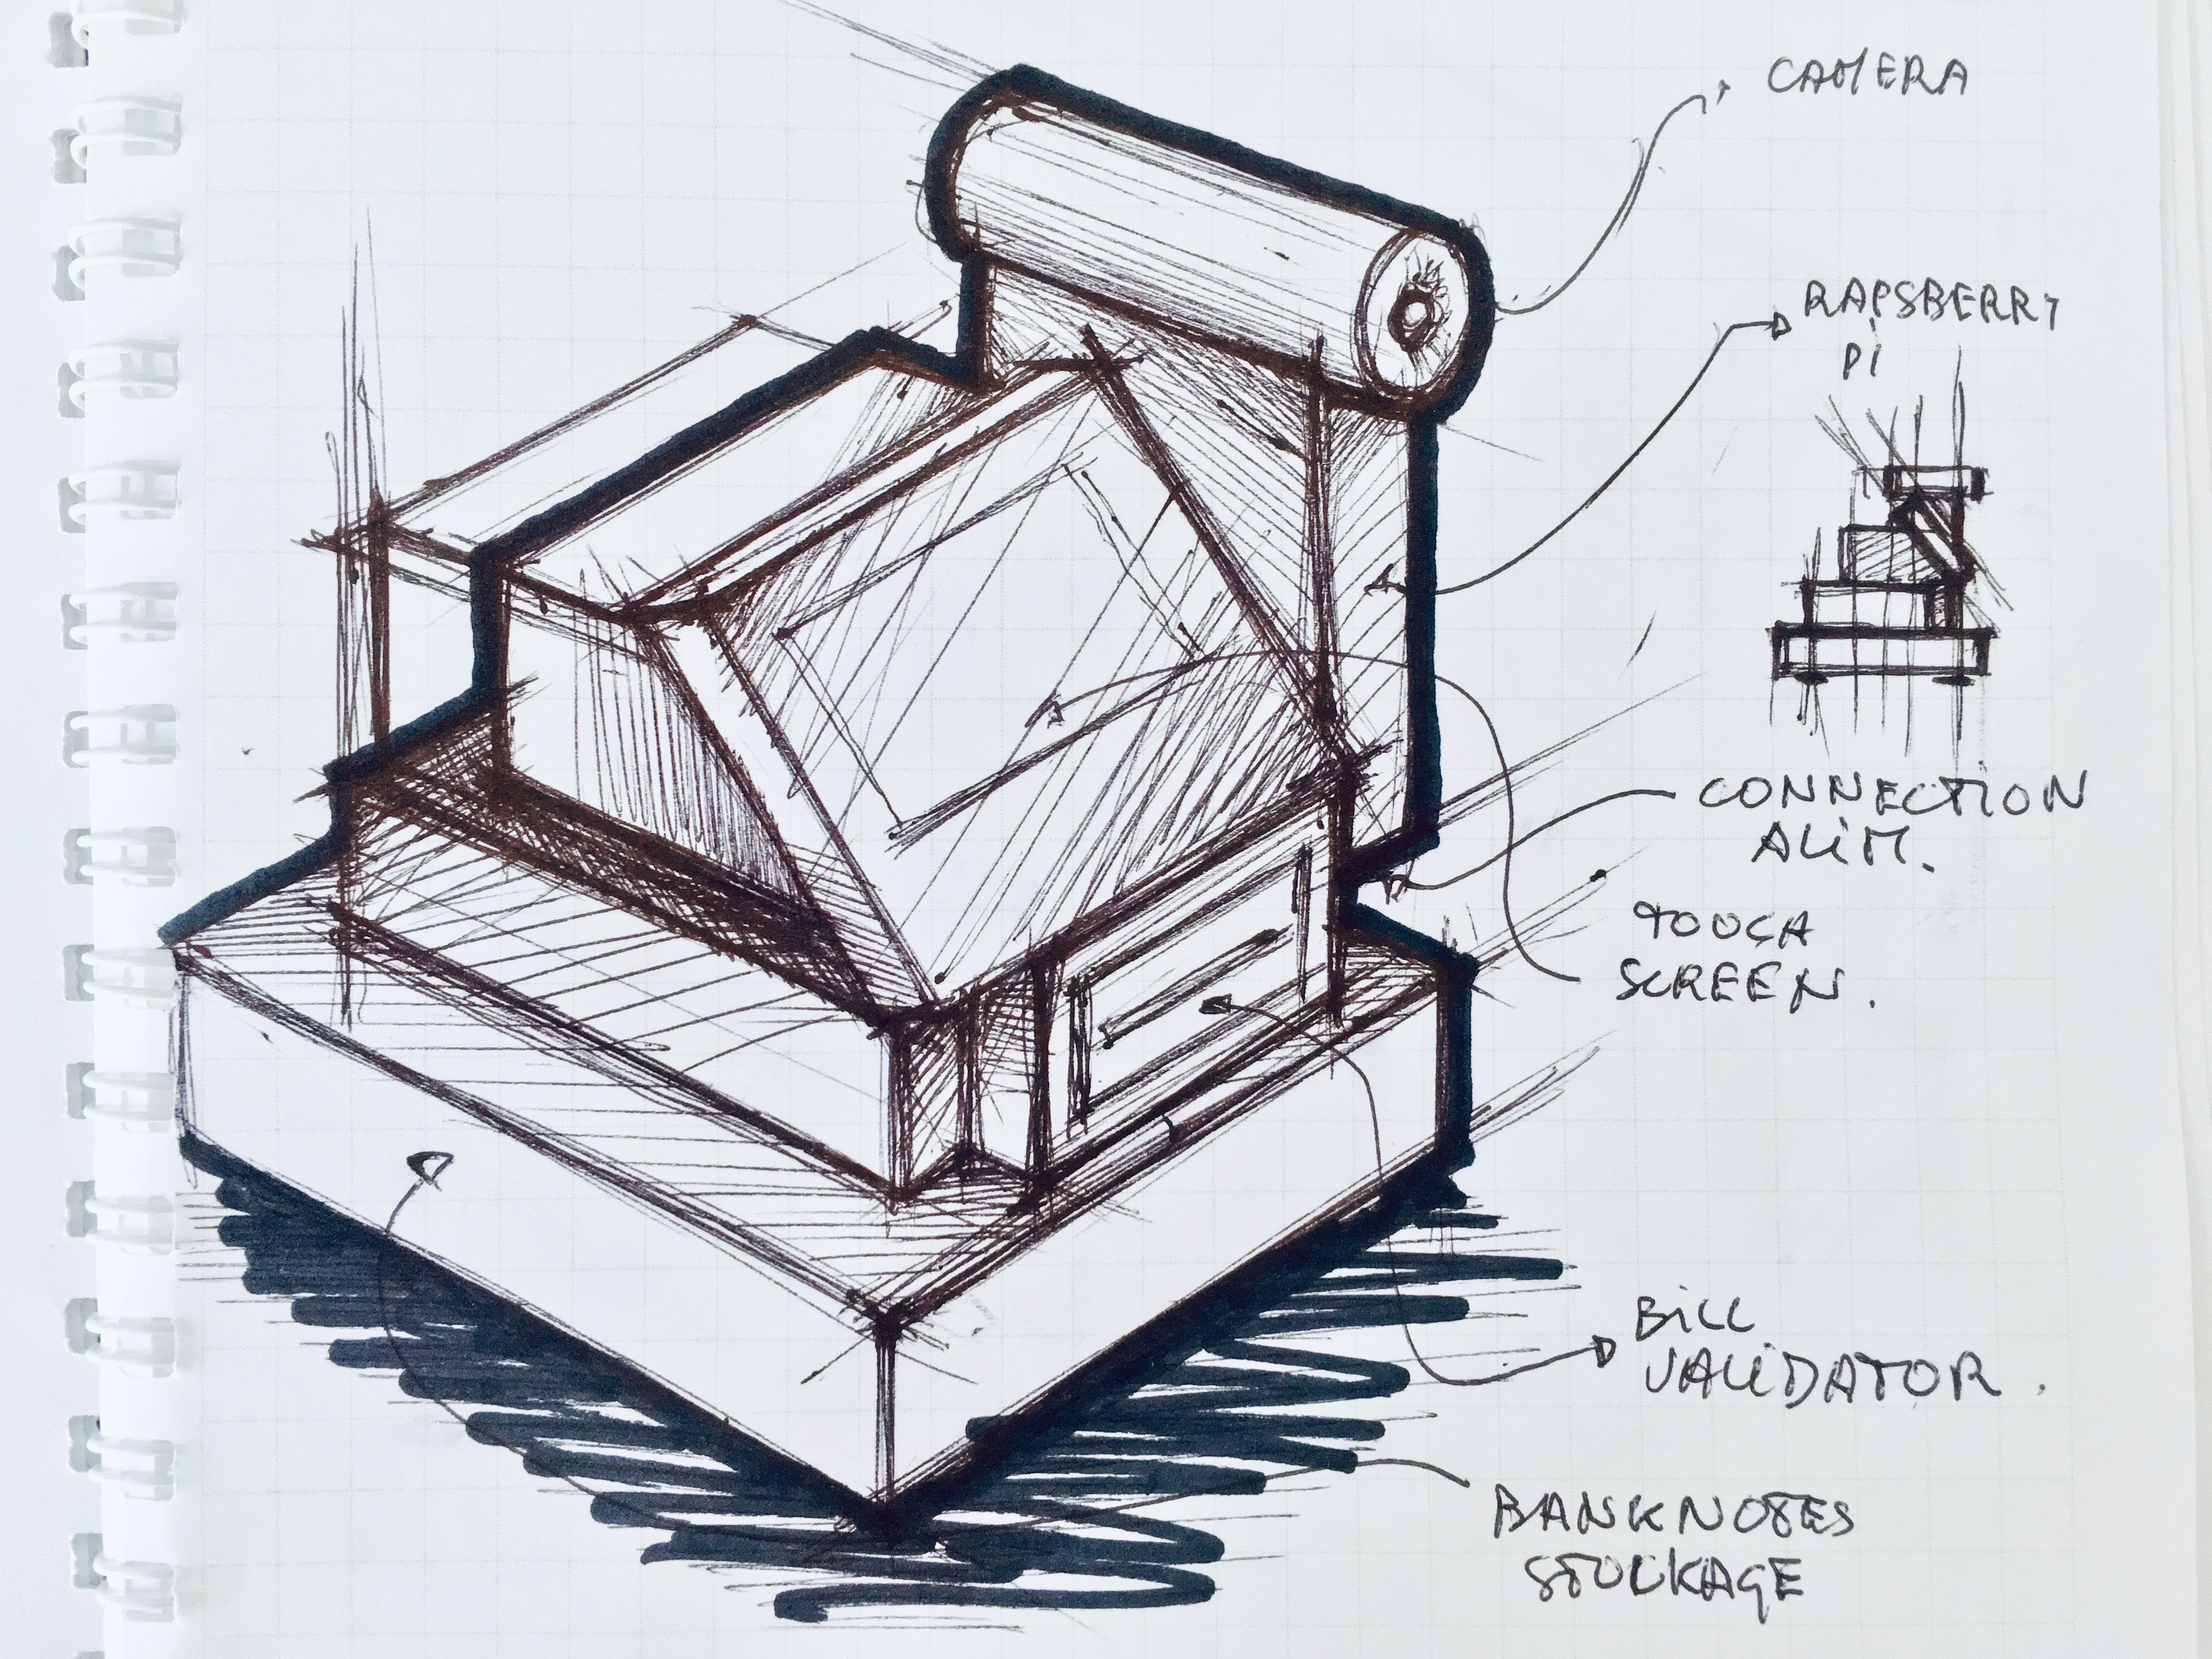 CAMERA
RAPSBERRY
Pi
CONNECTION
ALiM.
TOUCH
SCREEN.
BiLL
VALiDATOR.
BANKNOTES
STOCKAGE